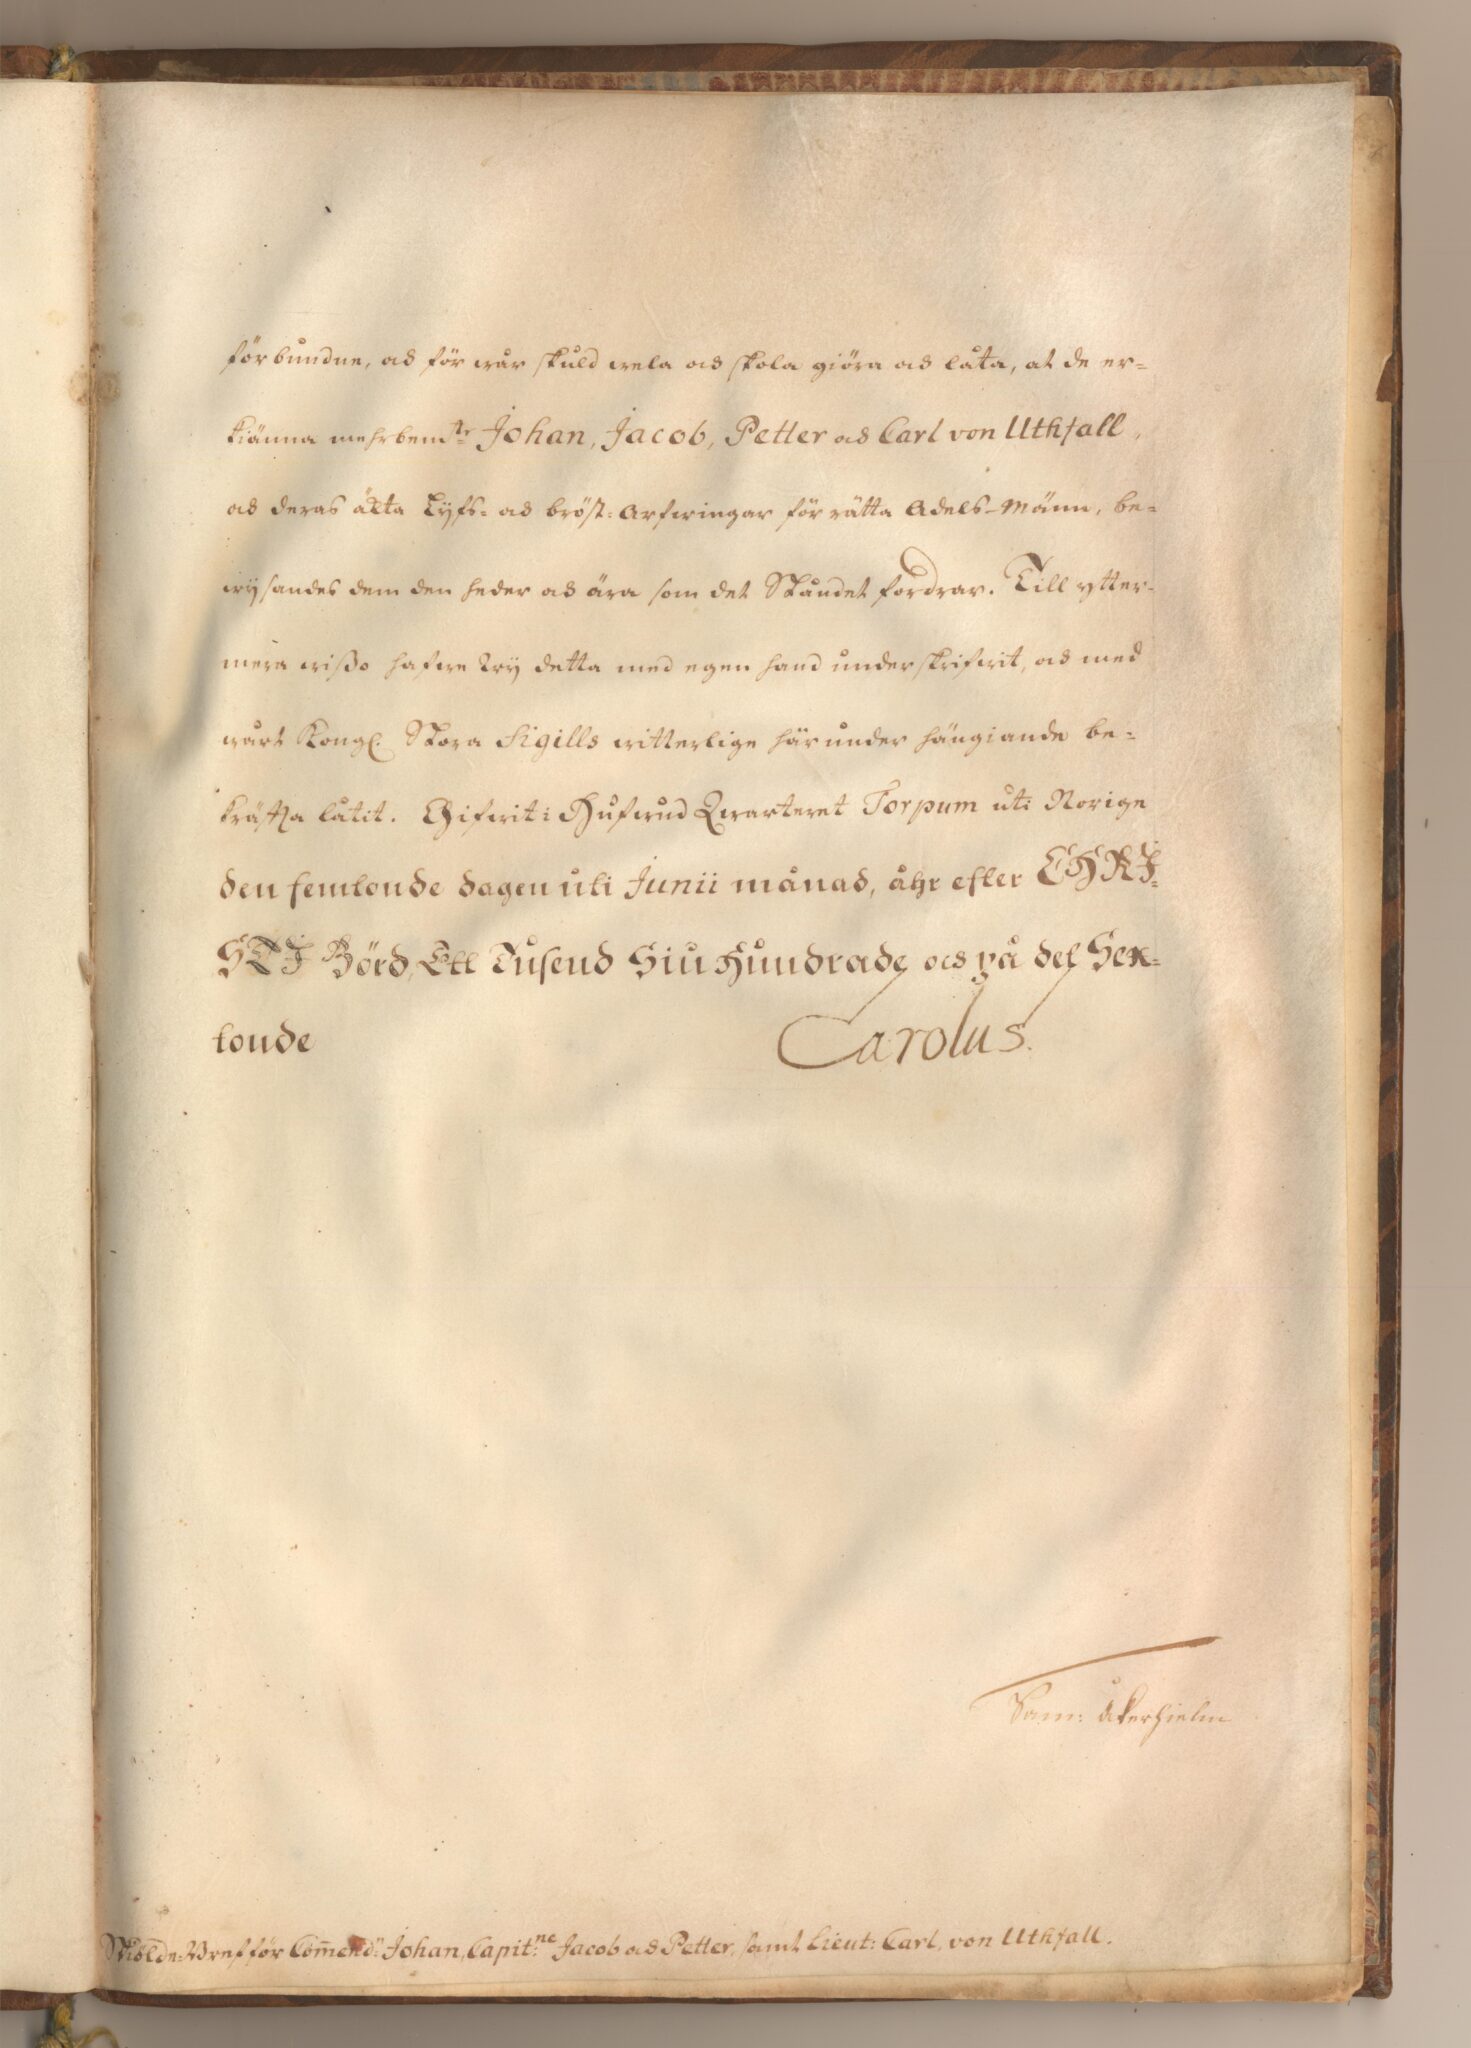 förbundne, och för wår skuld wela och skola giöra och låta, at de er-
kiänna mehrbem:te Johan, Jacob, Petter och Carl von Uthfall,
och deras ächta Lijfs- och bröst-Arfwingar för rätta Adels-Männ, be-
wijsandes dem den heder och ära som det Ståndet fordrar. Till ytter-
mera wißo hafwe Wij detta med egen hand underskrifwit, och med
wårt Kongl. Stora Sigills witterlige här under hängiande be-
kräffta låtit. Gifwit i Hufwud Qwarteret Torpum uti Norige
den femtonde dagen uti Junii månad, åhr efter CHRI-
STI Börd, Ett Tusend Siu Hundrade och på det Sex-
tonde
Carolus.
Sam: Åkerhielm
Skiölde-Bref för Commend:n Johan, Capit:ne Jacob och Petter, samt Lieut: Carl, von Uthfall.